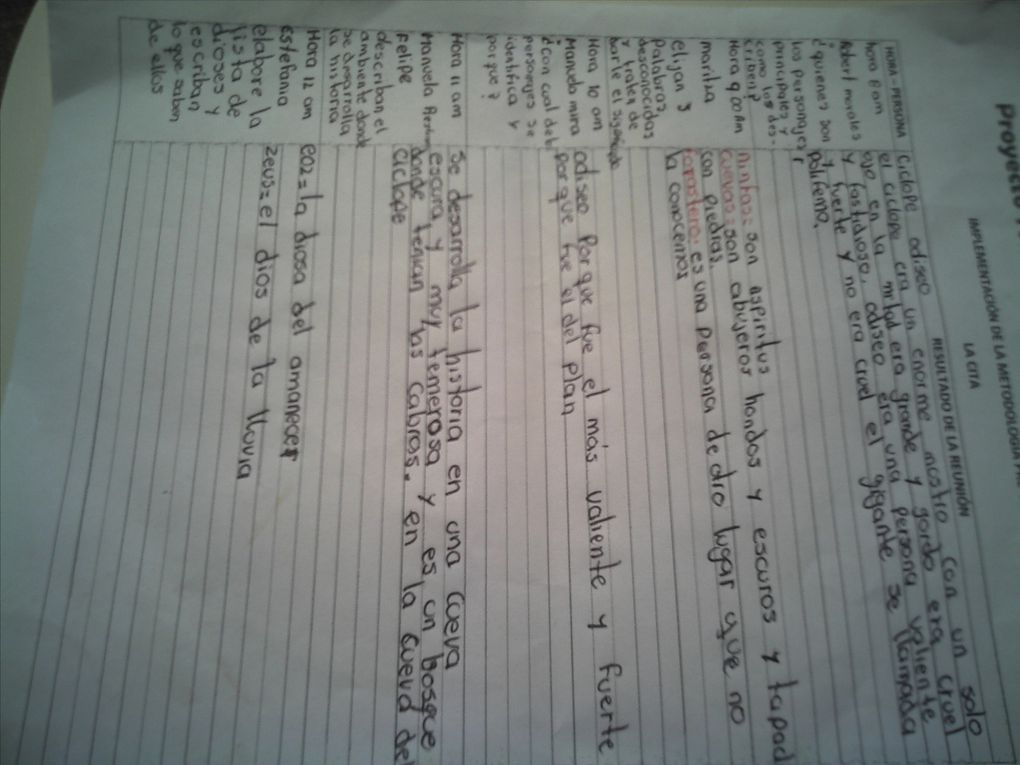 Proyecto
IMPLEMENTACIÓN DE LA METODOLOGÍA
LA CITA
HORA - PERSONA
RESULTADO DE LA REUNIÓN
hora 8 am
Robert morales
¿quienes son
los personajes
principales y
como los des-
criben?
ciclope odiseo
el ciclope era un enorme mostro con un solo
ojo en la mitad era grande y gordo era cruel
y fastidioso, odiseo era una persona valiente
y fuerte y no era cruel el gigante se llamada
polifemo.
Hora 9:00 Am
maritza
elijan 3
Palabras
desconocidas
y traten de
darle el significado
ninfas: son espiritus hondos y escuros y tapad
cuevas: son abujeros
con piedras.
forastero: es una persona de dro lugar que no
la conocemos
Hora 10 am
Manuela mira
¿con cual de los
personajes se
identifica y
porque?
odiseo porque fue el más valiente y fuerte
porque fue el del plan
Hora 11 am
Manuela
Felipe
describan el
ambiente donde
se desarrolla
la historia
se desarrolla la historia en una cueva
escura y muy temerosa y es un bosque
donde tenian las cabras. en la cueva del
ciclope
Hora 12 am
estefania
elabore la
lista de
dioses y
escriban
lo que saban
de ellos
eoz = la diosa del amanecer
zeus = el dios de la lluvia